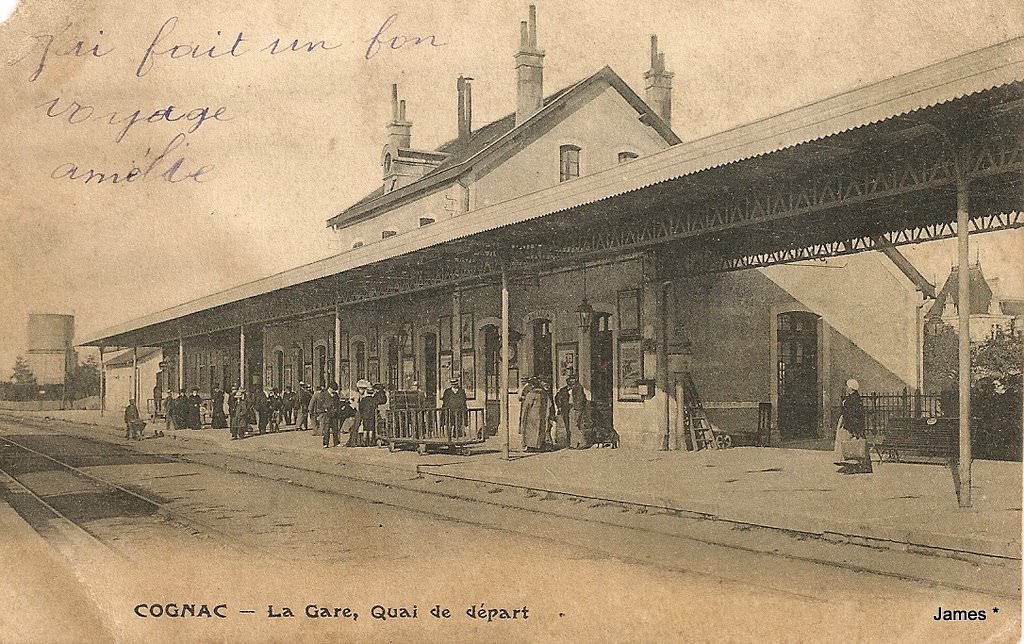 J'ai fait un bon
voyage
amélie
COGNAC — La Gare, Quai de départ
James *